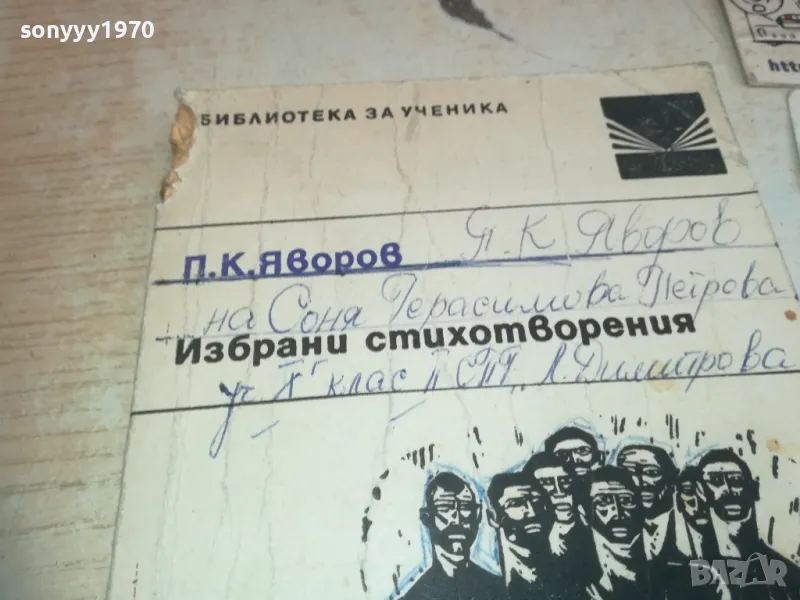 sonyyy1970
htt
БИБЛИОТЕКА ЗА УЧЕНИКА
П.К.Яворов П. К Яворов
на Соня Герасимова Петрова
Избрани стихотворения
уч. X г клас II СПТ „Л. Димитрова
BAZAR